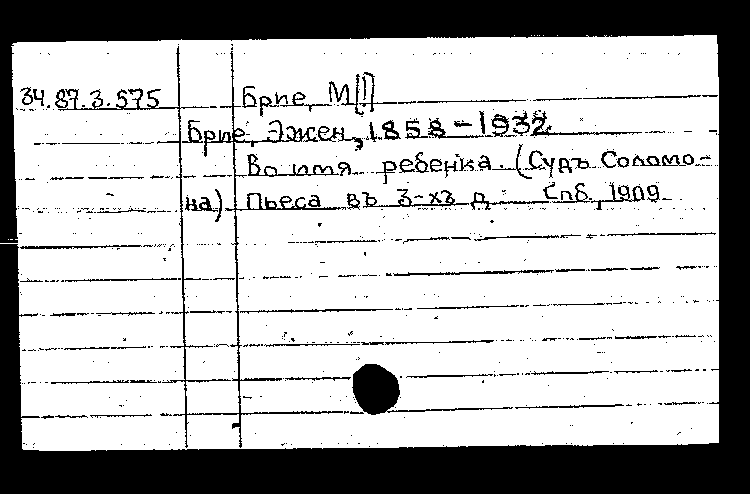 34.87.3.575 Брие, М[!]
Брие, Эжен, 1858-1932
Во имя ребенка. (Судъ Соломо-
на). Пьеса въ 3-хъ д. Спб., 1909